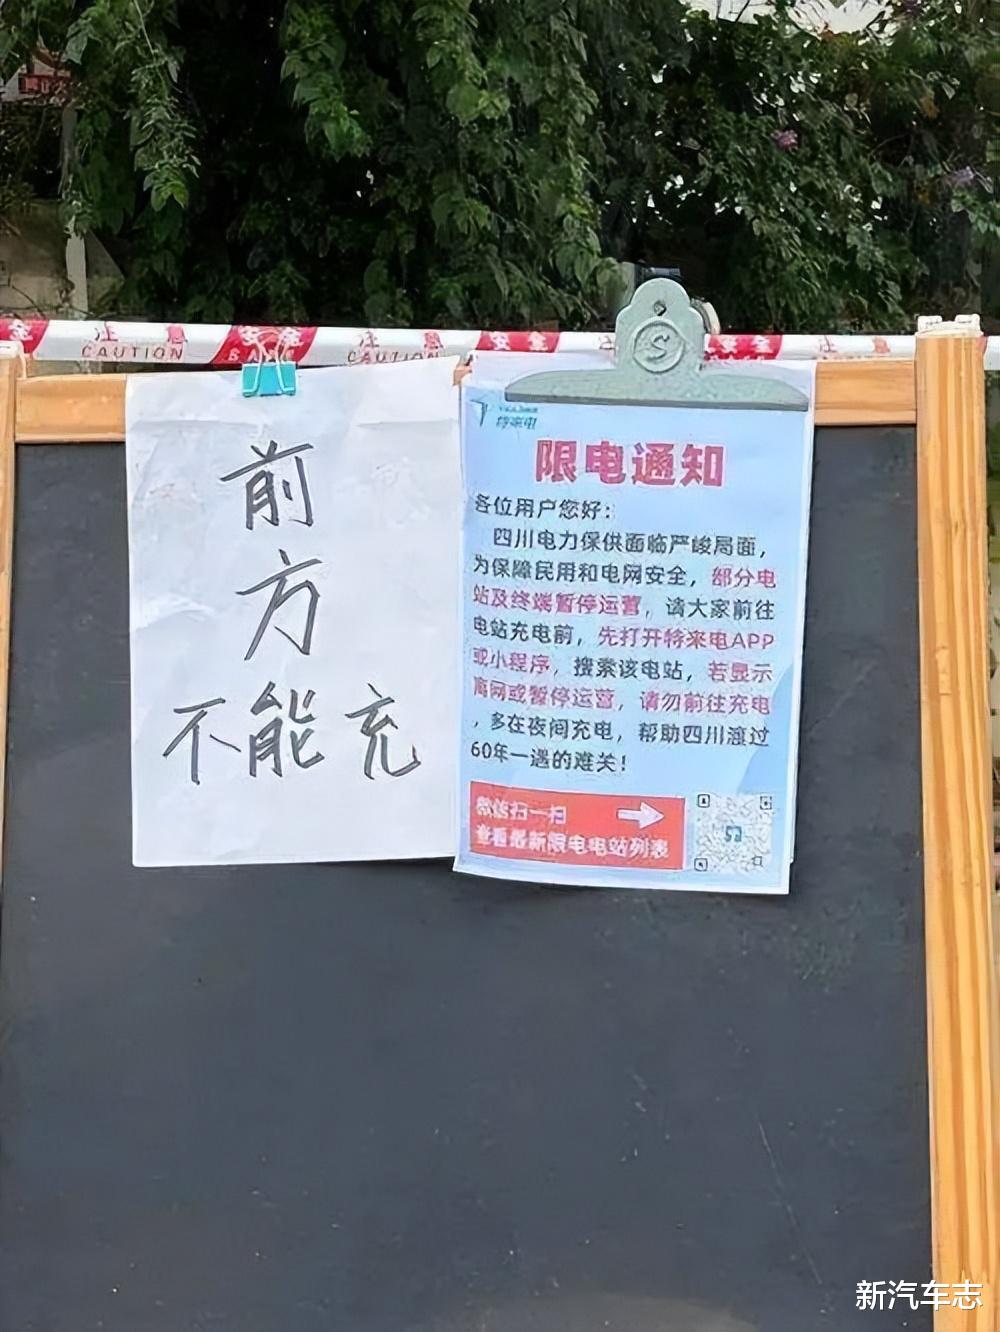 注 意 安全 注 意 安全 注 安全 注 意
CAUTION CAUTION
前
方
不能充
特来电
限电通知
各位用户您好：
四川电力保供面临严峻局面，
为保障民用和电网安全，部分电
站及终端暂停运营，请大家前往
电站充电前，先打开特来电APP
或小程序，搜索该电站，若显示
离网或暂停运营，请勿前往充电
，多在夜间充电，帮助四川渡过
60年一遇的难关！
微信扫一扫
查看最新限电电站列表
新汽车志